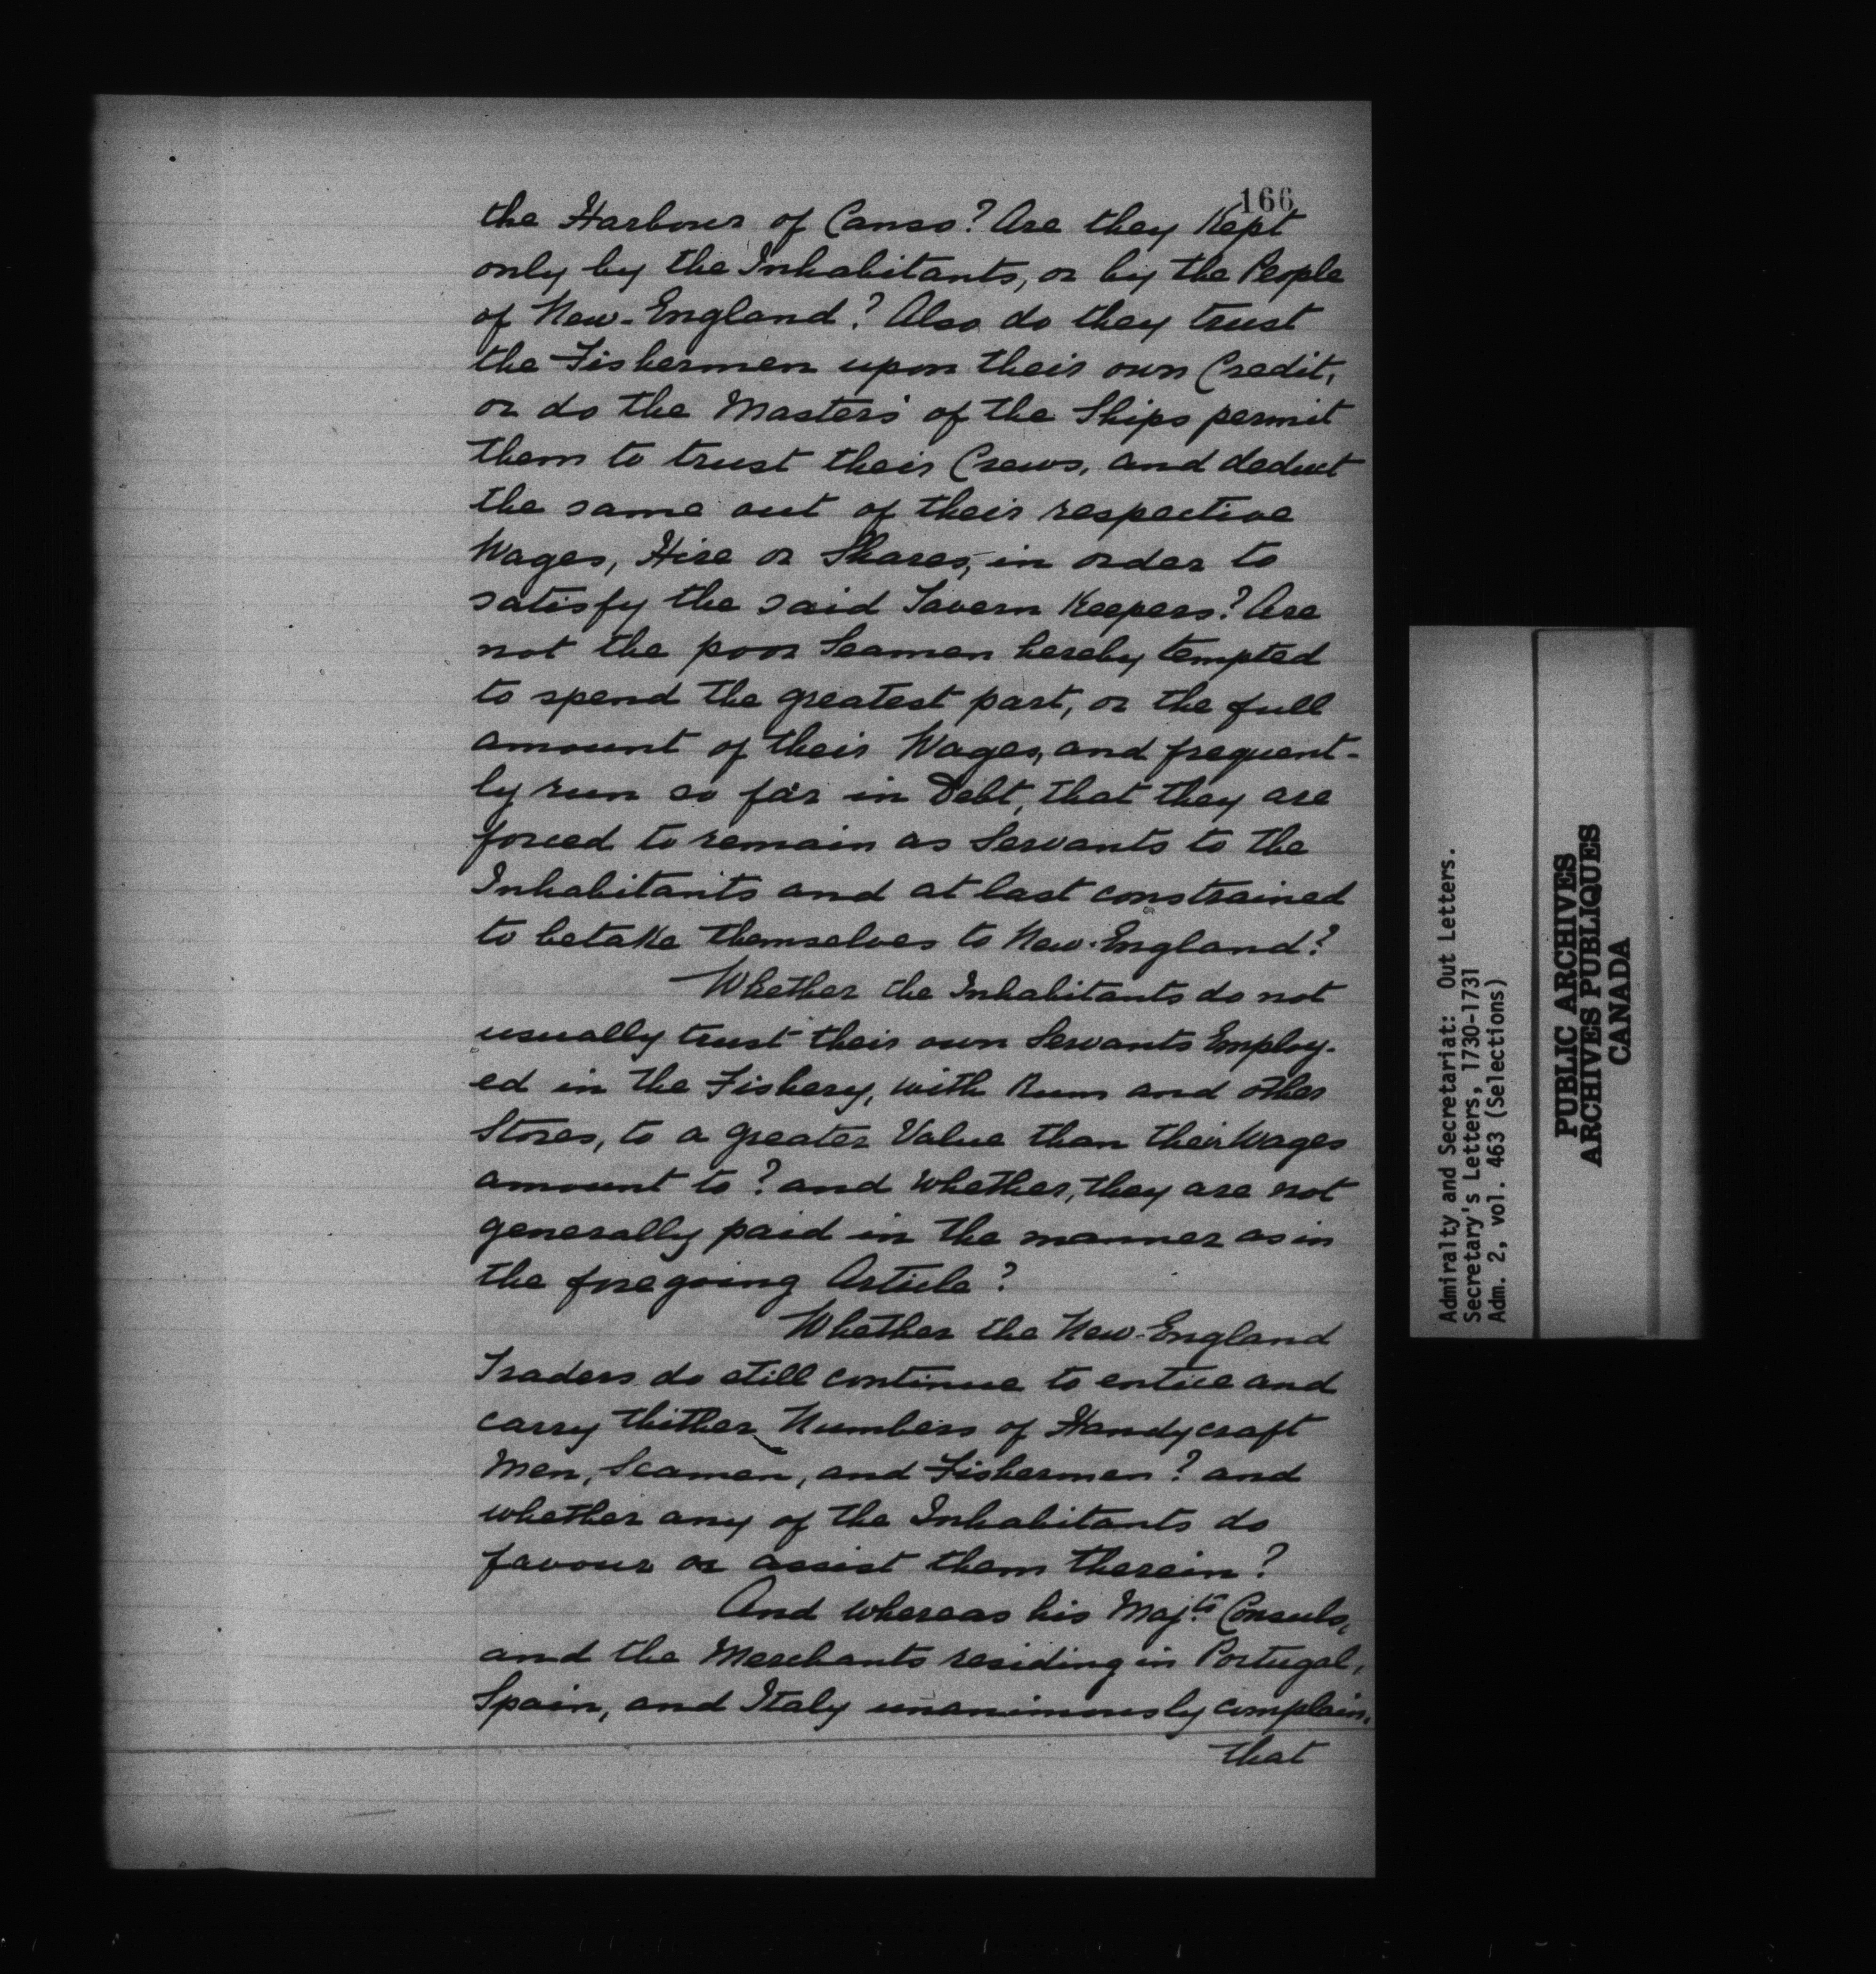 166
the Harbour of Canso? Are they Kept
only by the Inhabitants, or by the People
of New-England? Also do they trust
the Fishermen upon their own Credit,
or do the Masters of the Ships permit
them to trust their Crews, and deduct
the same out of their respective
Wages, Hire or Shares, in order to
satisfy the said Tavern Keepers? Are
not the poor Seamen hereby tempted
to spend the greatest part, or the full
amount of their Wages, and frequent-
ly run so far in Debt, that they are
forced to remain as Servants to the
Inhabitants and at last constrained
to betake themselves to New-England?
Whether the Inhabitants do not
usually trust their own Servants Employ-
ed in the Fishery, with Rum and other
Stores, to a greater Value than their Wages
amount to? and whether, they are not
generally paid in the manner as in
the foregoing Article?
Whether the New-England
Traders do still continue to entice and
carry thither Numbers of Handycraft
Men, Seamen, and Fishermen? and
whether any of the Inhabitants do
favour or assist them therein?
And whereas his Maj.ts Consuls,
and the Merchants residing in Portugal,
Spain, and Italy unanimously complain,
that
Admiralty and Secretariat: Out Letters.
Secretary's Letters, 1730-1731
Adm. 2, vol. 463 (Selections)
PUBLIC ARCHIVES
ARCHIVES PUBLIQUES
CANADA